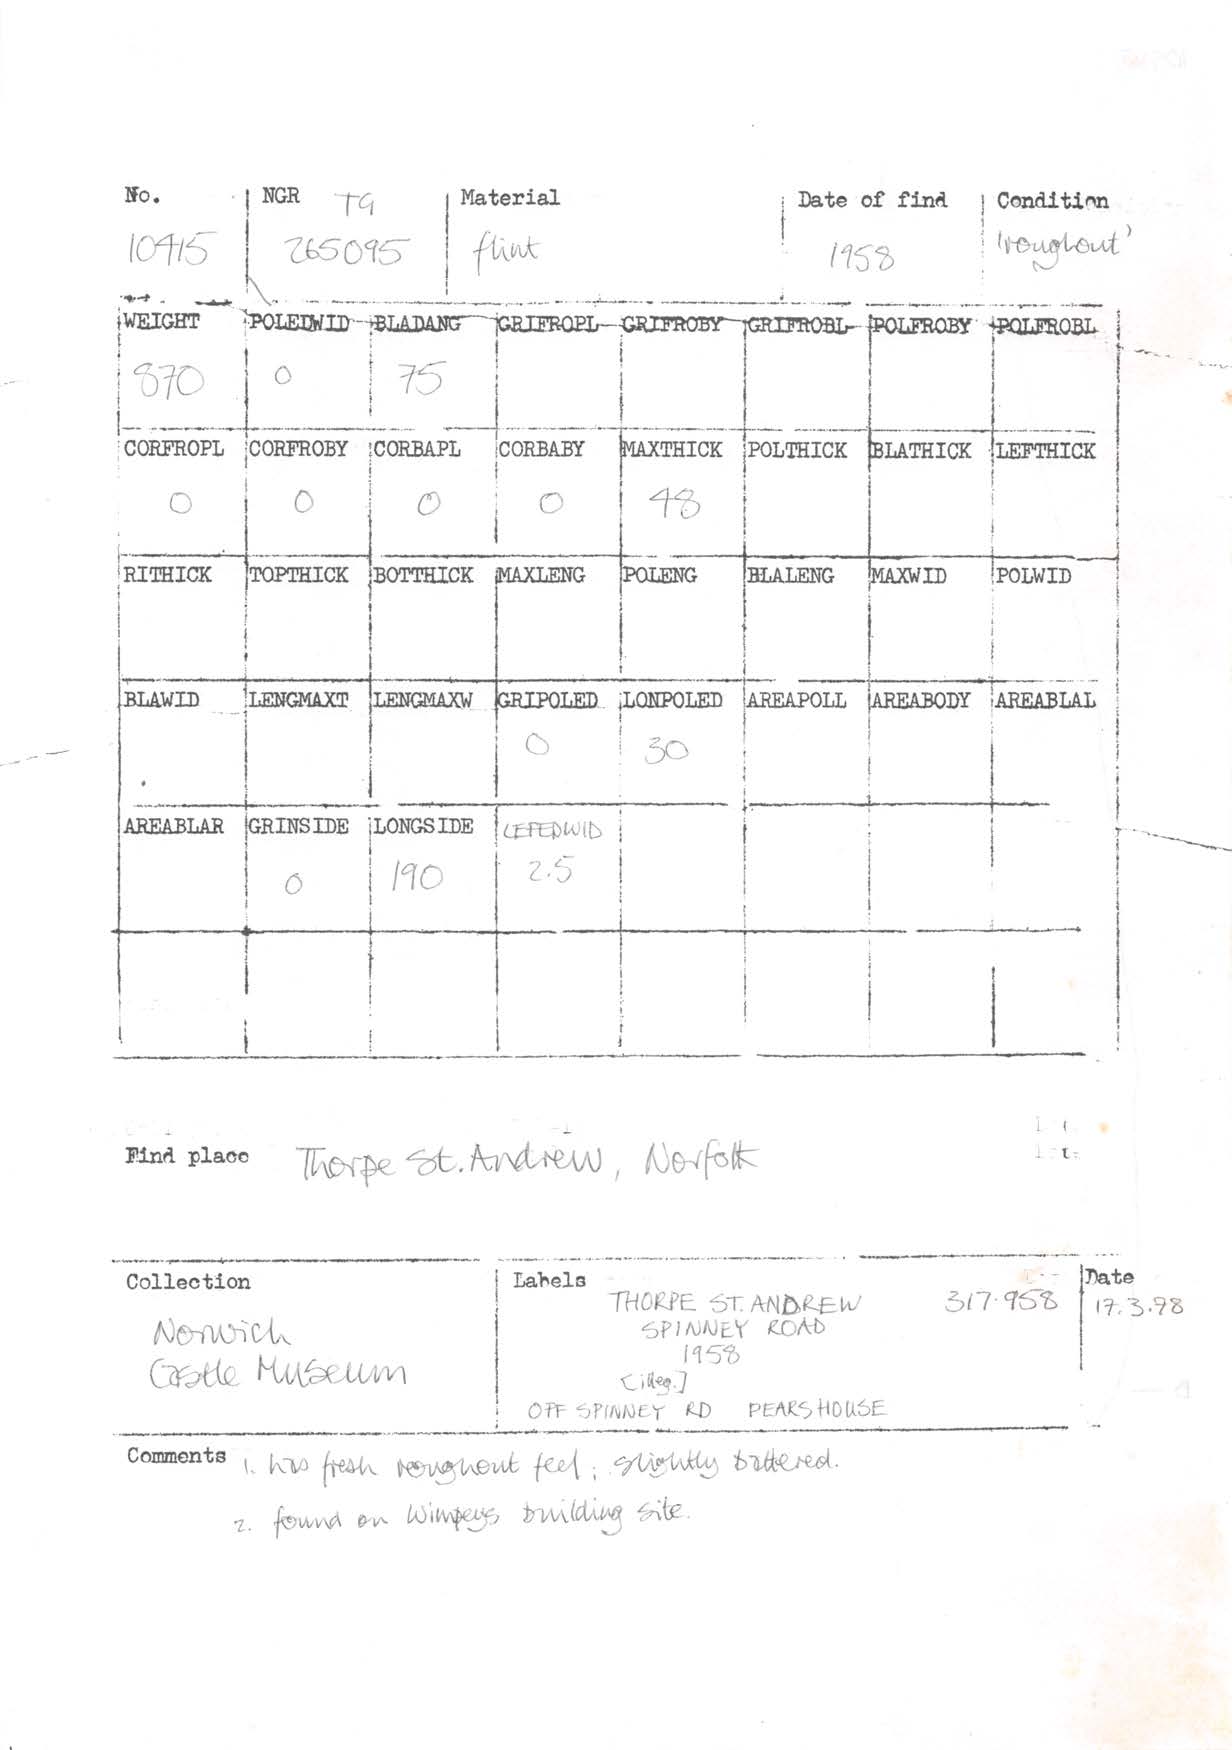 No. NGR TG Material Date of find Condition
10415 265095 flint 1958 'roughout'
WEIGHT POLEDWID BLADANG GRIFROPL GRIFROBY GRIFROBL POLFROBY POLFROBL
870 0 75
CORFROPL CORFROBY CORBAPL CORBABY MAXTHICK POLTHICK BLATHICK LEFTHICK
0 0 0 0 48
RITHICK TOPTHICK BOTTHICK MAXLENG POLENG BLALENG MAXWID POLWID
BLAWID LENGMAXT LENGMAXW GRIPOLED LONPOLED AREAPOLL AREABODY AREABLAL
0 30
AREABLAR GRINSIDE LONGSIDE LEFEDWID
0 190 2.5
Find place Thorpe St. Andrew, Norfolk
Collection Labels Date
THORPE ST. ANDREW 317.958 17.3.98
Norwich SPINNEY ROAD
1958
Castle Museum [illeg.]
OFF SPINNEY RD PEARS HOUSE
Comments 1. has fresh roughout feel; slightly battered.
2. found on Wimpeys building site.